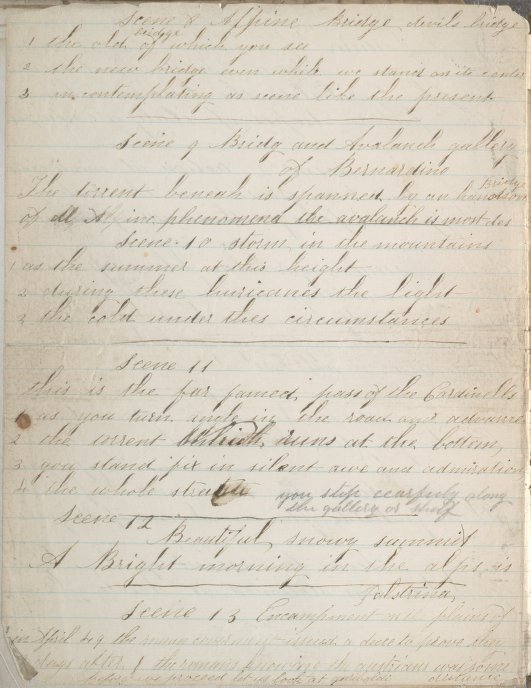 Scene 8 Alpine Bridge devils bridge
1 the old bridge of which you see
2 the new bridge even while we stand on its center
3 in contemplating as scene like the present
Scene 9 Bridg and Avalanch gallery
of Bernardino
The torrent beneah is spanned by an handsom Bridge
of all Alpine phenomena the avalanch is most des
Scene 10 storm in the mountains
1 as the summer at this height
2 during these hurricanes the light
3 the cold under thes circumstances
Scene 11
this is the far famed pass of the Cardinells
as you turn angle in the road and advance
2 the torrent which runs at the bottom,
3 you stand fix in silent awe and admiration
4 the whole
you step cearfuly along
the gallery or shelf
Scene 12
Beautiful snowy summit
A Bright morning in the alps is
Scene 13 Encampment on plains of
in April 49 the roman government issued a
days after the romans
before we proceed let us look at